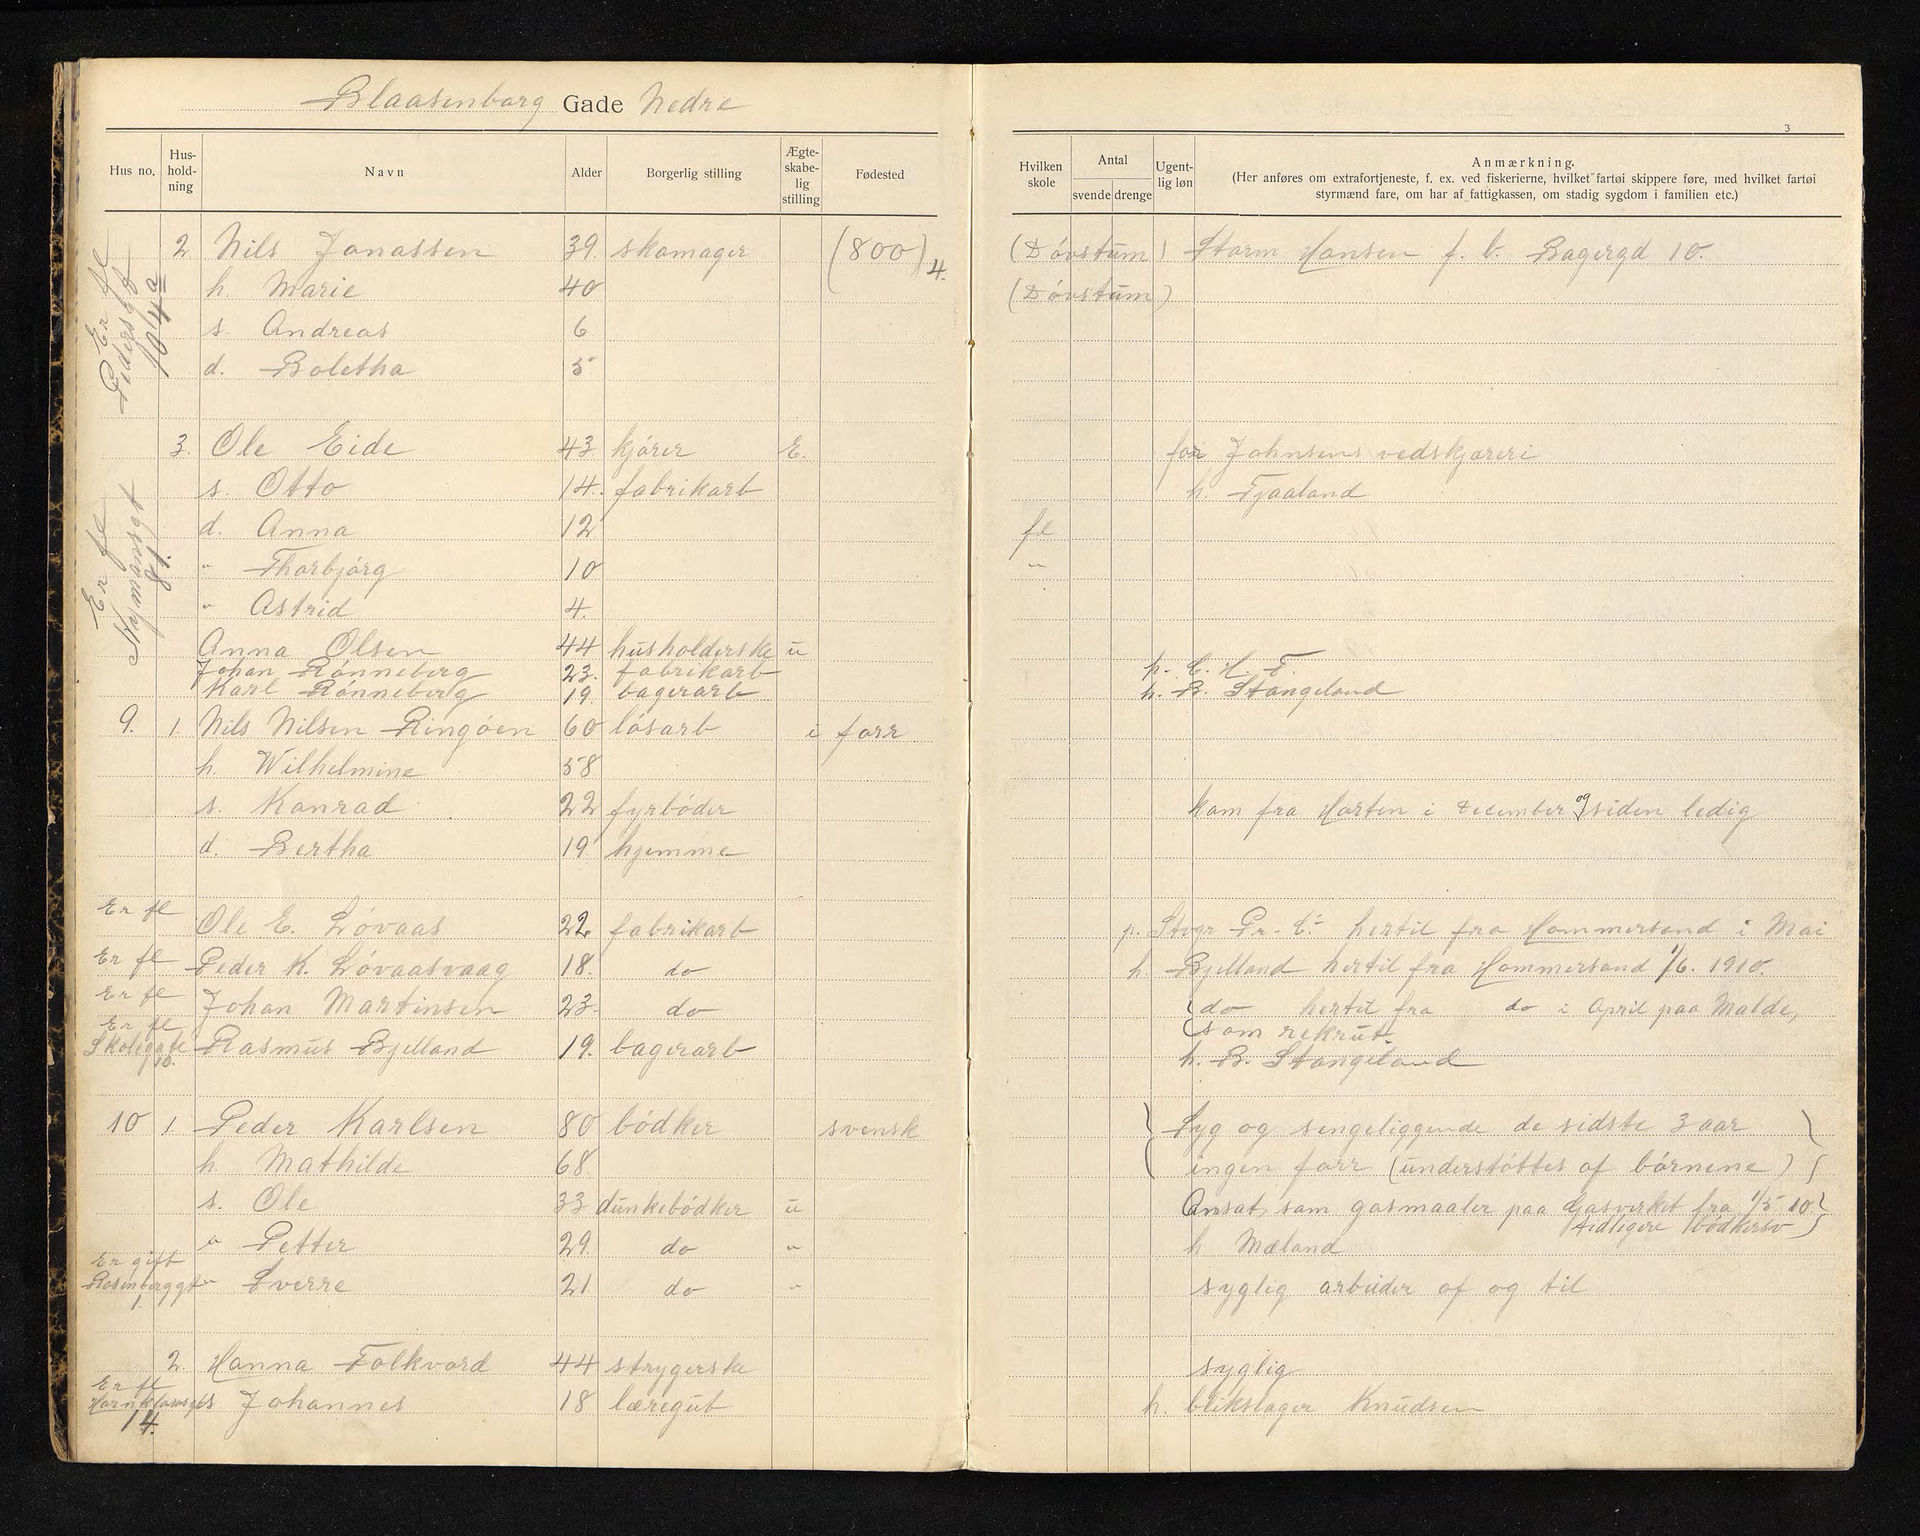 Blaasenborg Gade Nedre
3
Hus no. Husholdning Navn Alder Borgerlig stilling Ægteskabelig stilling Fødested Hvilken skole Antal svende drenge Ugentlig løn Anmærkning.
(Her anføres om extrafortjeneste, f. ex. ved fiskerierne, hvilket fartøi skippere føre, med hvilket fartøi
styrmænd fare, om har af fattigkassen, om stadig sygdom i familien etc.)
Er fl Pedersgt 104a
2. Nils Jonassen 39. skomager (800) 4. (Døvstum) Storm Hansen f. b. Bagergd 10.
h. Marie 40 (Døvstum)
s. Andreas 6
d. Boletha 5
Er fl Nymansgt 81.
3. Ole Eide 43 kjører E. for Johnsens vedskjæreri
s. Otto 14. fabrikarb h. Tjaaland
d. Anna 12 fl
" Thorbjørg 10 "
" Astrid 4.
Anna Olsen 44 husholderske u
Johan Rønneberg 23. fabrikarb p. C. H. F.
Karl Rønneberg 19. bagerarb h. B. Stangeland
9. 1. Nils Nilsen Ringøen 60 løsarb i forr
h. Wilhelmine 58
s. Konrad 22 fyrbøder kom fra Horten i December og siden ledig
d. Bertha 19 hjemme
Er fl Ole E. Løvaas 22. fabrikarb p. Stvgr Pr. C. hertil fra Hommersand i Mai
Er fl Peder K. Løvaasvaag 18. do h. Bjelland hertil fra Hommersand 1/6. 1910.
Er fl Johan Martinsen 23. do do hertil fra do i April paa Malde,
som rekrut.
Er fl Skolegate 10. Rasmus Bjelland 19. bagerarb h. B. Stangeland
10 1. Peder Karlsen 80 bødker svensk Syg og sengeliggende de sidste 3 aar
h. Mathilde 68. ingen forr (understøttes af børnene)
s. Ole 33 dunkebødker u Ansat som gasmaaler paa Gasverket fra 1/5 10
tidligere bødkersv
" Petter 29. do " h Mæland
Er gift Rosenberggt 1. " Sverre 21. do " syglig arbeider af og til
2. Hanna Folkvord 44 strygerske syglig
Er fl 14. s Johannes 18 læregut h. blikslager Knudsen